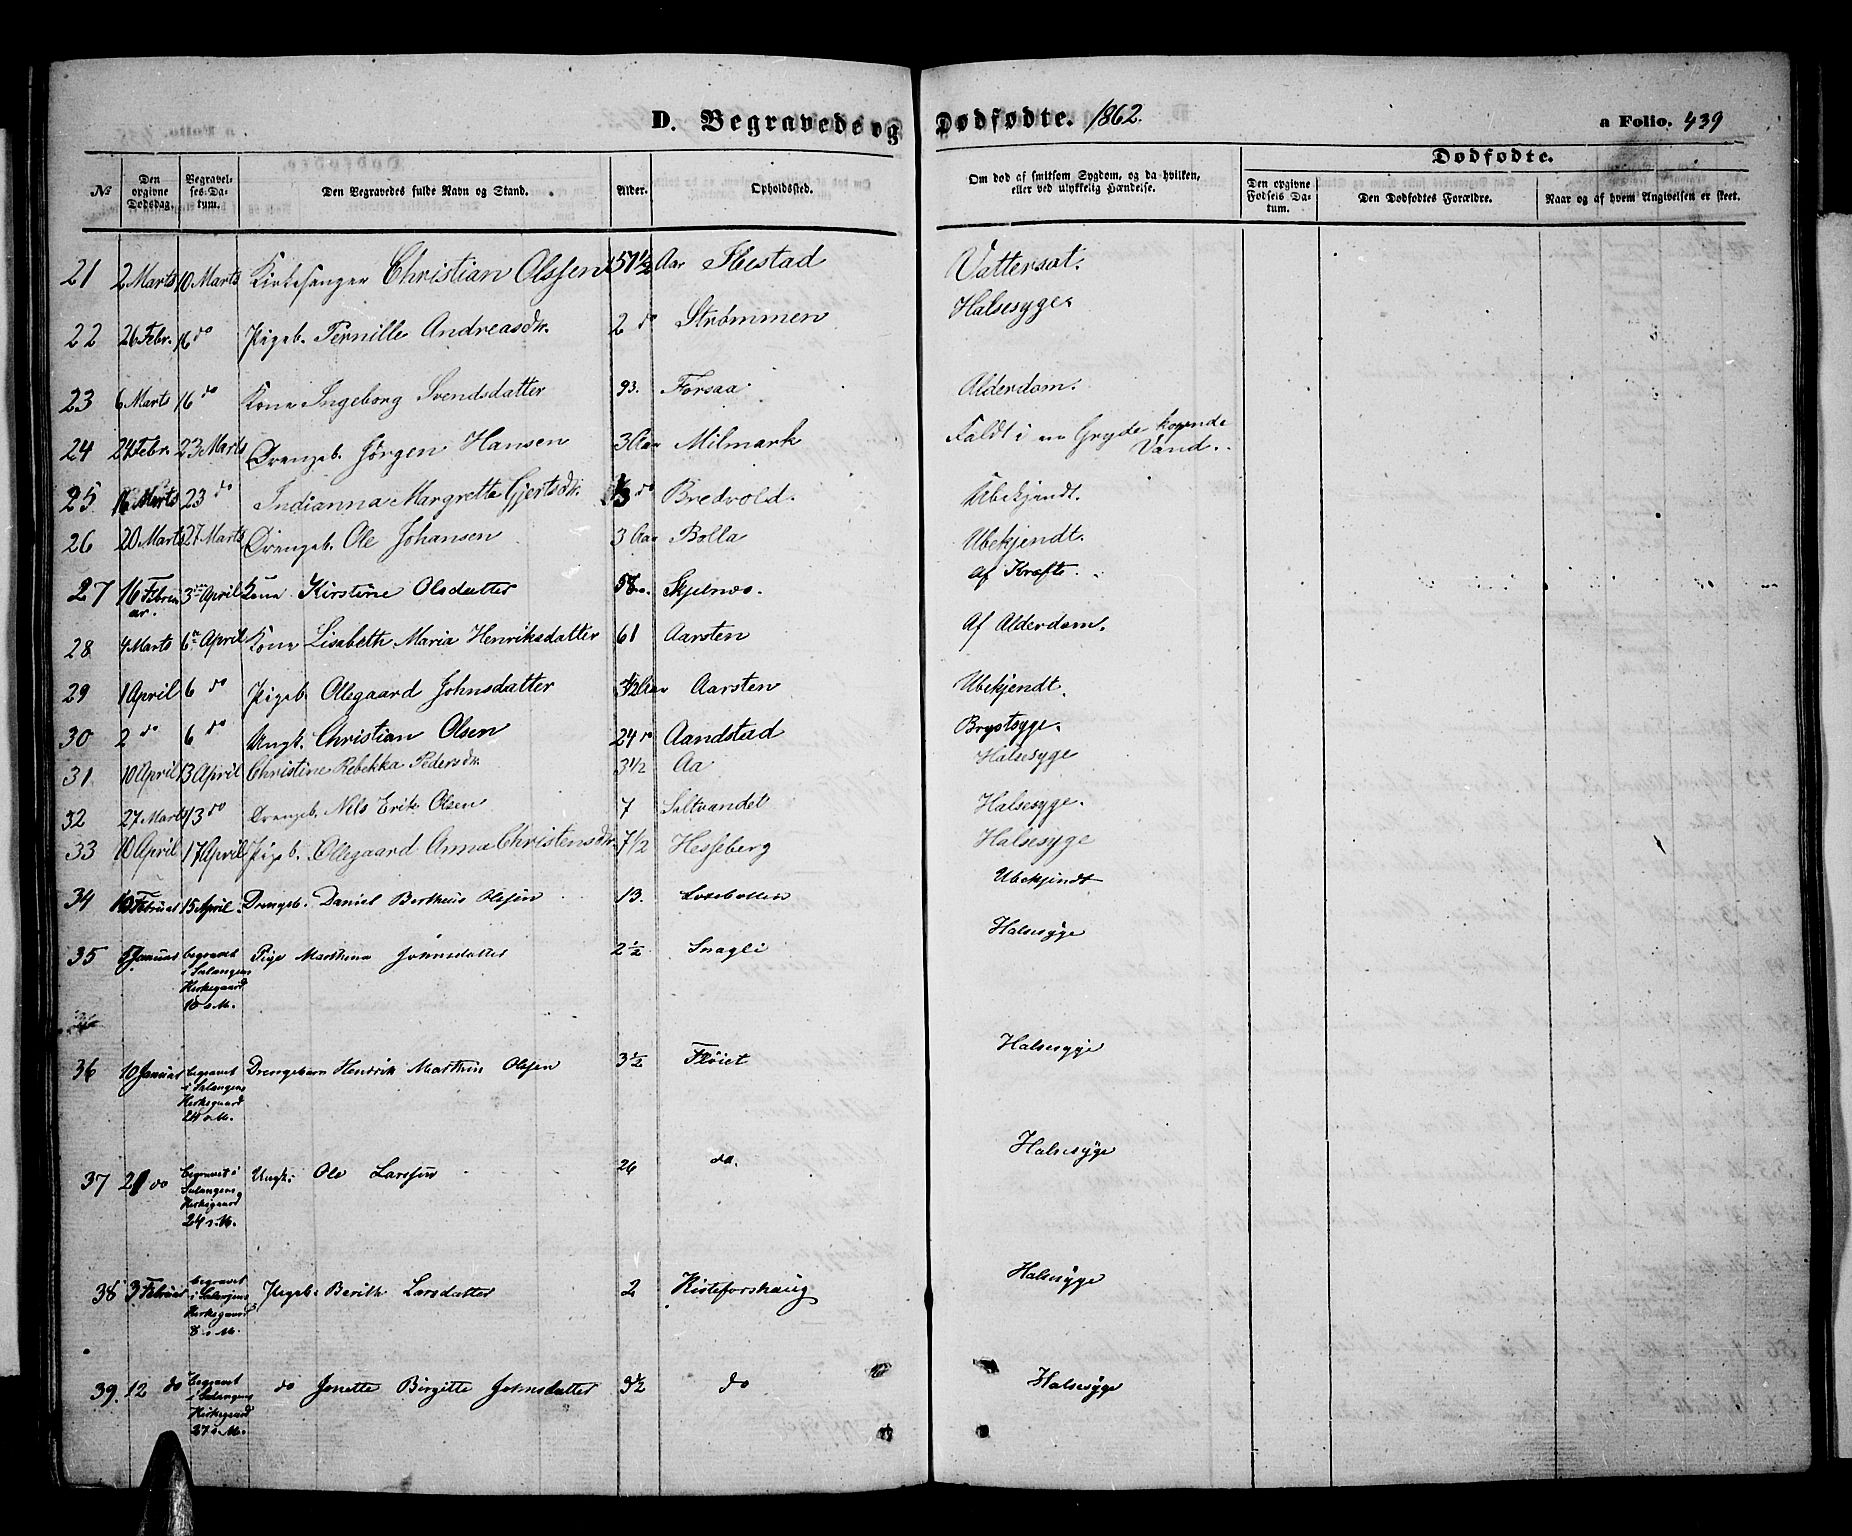 D. Begravede og Dødfødte. 1862.
a Folio. 439
Dødfødte.
No
Den opgivne Dødsdag.
Begravelses-Datum.
Den Begravedes fulde Navn og Stand.
Alder.
Opholdssted.
Om død af smitsom Sygdom, og da hvilken, eller ved ulykkelig Hændelse.
Den opgivne Fødsels Datum.
Den Dødfødtes Forældre.
Naar og af hvem Angivelsen er skeet.
21 2 Marts 10 Marts Kirkesanger Christian Olssen 57 1/2 Aar Ibestad Vattersot.
22 26 Febr. 16 do Pigeb. Pernille Andreasdr. 2 do Strømmen Halsesyge.
23 6 Marts 16 do Kone Ingeborg Svendsdatter 93. Forsaa Alderdom.
24 24 Febr. 23 Marts Drengeb. Jørgen Hansen 3 Aar Milmark Faldt i en Gryde kogende Vand.
25 16 Marts 23 do Indianna Margrette Gjertsdr. do Bredvold. Ubekjendt.
26 20 Marts 27 Marts Drengeb. Ole Johansen 3 Aar Bolla Ubekjendt.
27 16 Februar. 3 April Kone Kirstine Olsdatter 58 Skjelnes. Af Kræft.
28 4 Marts 6 April Kone Lisabeth Maria Henriksdatter 61 Aarsten Af Alderdom.
29 1 April 6 do Pigeb Ollegaard Johnsdatter Aarsten Ubekjendt.
30 2 do 6 do Ungk. Christian Olsen 24 Aandstad Brystsyge.
31 10 April 13 April Christine Rebekka Pedersdr. 3 1/2 Aa Halsesyge
32 27 Marts 13 do Drengeb. Nils Erik Olsen 7 Saltvandet Halsesyge.
33 10 April 17 April Pigeb. Ollegaard Anna Christensdr. 7 1/2 Hesseberg Halsesyge
34 Februar 15 April. Drengeb. Daniel Bertheus Olssen 13. Ubekjendt
35 Januar begravet i Salangens Kirkegaard 10 s. M. Pige Marthina Johnsdatter 2 1/2 Snagli Halsesyge
36 10 Januar begravet i Salangens Kirkegaard 24 s. M. Drengebarn Hendrik Marthin Olssen 3 1/2 Fløiet Halsesyge
37 21 do begravet i Salangens Kirkegaard 24 s. M. Ungk. Ole Larssen 26 do. Halsesyge
38 3 Februar begravet i Salangens Kirkegaard 8 s. M. Pigeb. Berith Larsdatter 2 Kisteforshaug Halsesyge
39. 12 do begravet i Salangens Kirkegaard 27 s. M. do Jonette Birgitte Johnsdatter 3 1/2 do Halsesyge